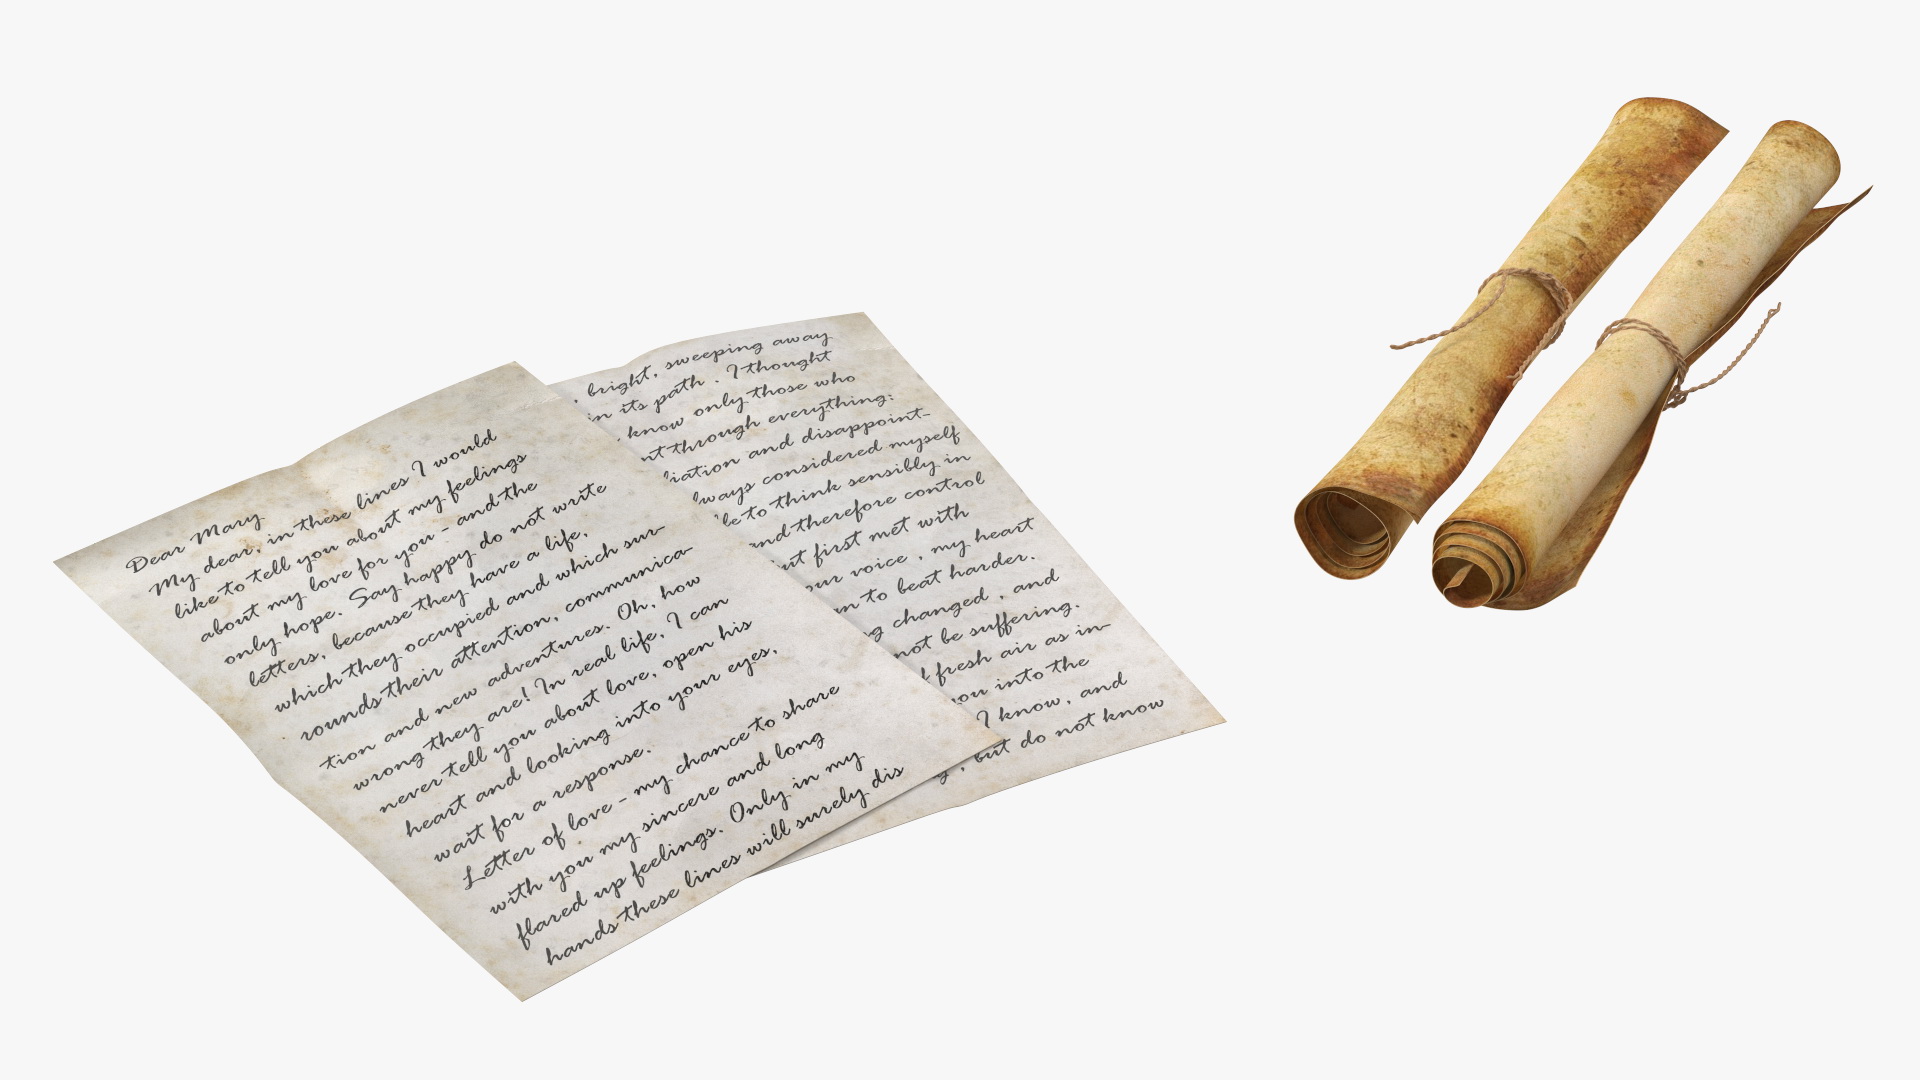 Dear Mary.
My dear, in these lines I would
like to tell you about my feelings
about my love for you - and the
only hope. Say happy do not write
letters, because they have a life,
which they occupied and which sur-
rounds their attention, communica-
tion and new adventures. Oh, how
wrong they are! In real life, I can
never tell you about love, open his
heart and looking into your eyes,
wait for a response.
Letter of love - my chance to share
with you my sincere and long
flared up feelings. Only in my
hands these lines will surely dis
, bright, sweeping away
in its path. I thought
know only those who
through everything:
and disappoint-
considered myself
to think sensibly in
and therefore control
first met with
voice, my heart
to beat harder.
changed, and
not be suffering.
fresh air as in-
you into the
I know, and
, but do not know